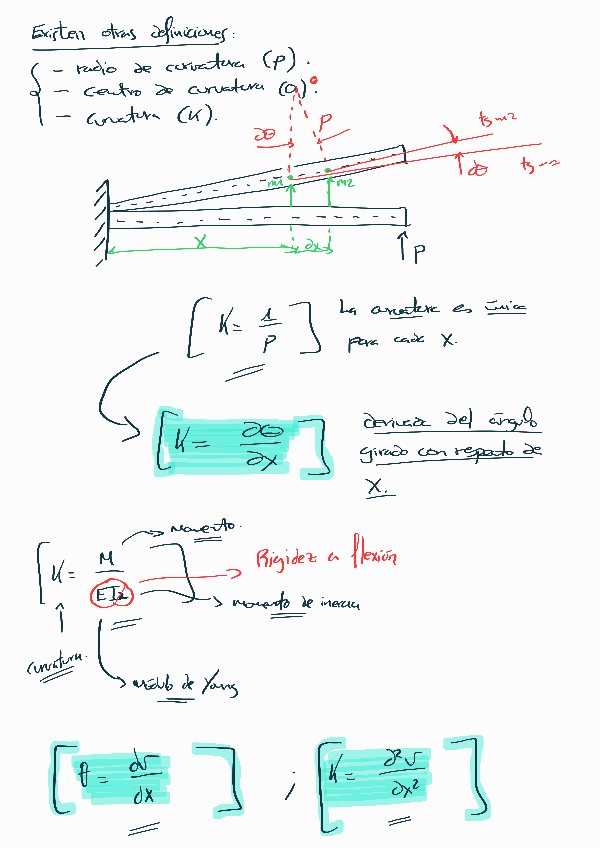 Existen otras definiciones:
- radio de curvatura (ρ).
- centro de curvatura (O').
- curvatura (K).
∂θ
ρ
tg m2
∂θ
tg m1
m1
m2
X
∂x
P
[K = 1/ρ] La curvatura es única
para cada X.
[K = ∂θ/∂x] derivada del ángulo
girado con respecto de
X.
Momento.
[K = M/EIz] Rigidez a flexión
momento de inercia
curvatura.
módulo de Young
[θ = dv/dx] ; [K = ∂²v/∂x²]